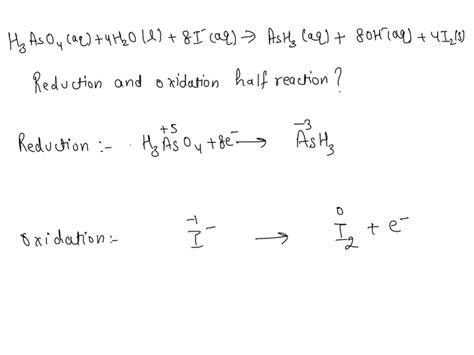 H₃AsO₄(aq)+4H₂O(l) + 8I⁻(aq) → AsH₃(aq) + 8OH⁻(aq) + 4I₂(s)
Reduction and oxidation half reaction?
+5 -3
Reduction :- H₃AsO₄ +8e⁻ → AsH₃
-1 0
Oxidation:- I⁻ → I₂ + e⁻